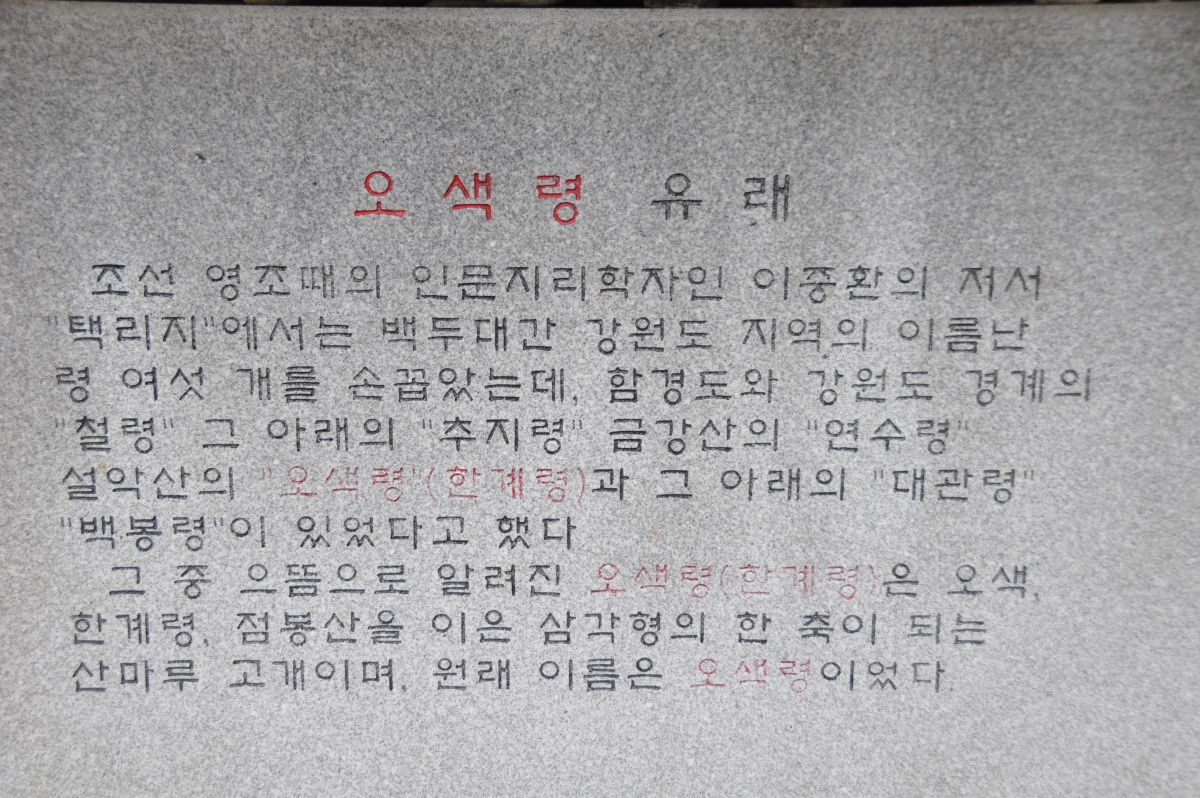 오색령 유래
조선 영조때의 인문지리학자인 이중환의 저서
"택리지"에서는 백두대간 강원도 지역의 이름난
령 여섯 개를 손꼽았는데, 함경도와 강원도 경계의
"철령" 그 아래의 "추지령" 금강산의 "연수령"
설악산의 "오색령"(한계령)과 그 아래의 "대관령"
"백봉령"이 있었다고 했다
그 중 으뜸으로 알려진 오색령(한계령)은 오색,
한계령, 점봉산을 이은 삼각형의 한 축이 되는
산마루 고개이며, 원래 이름은 오색령이었다.